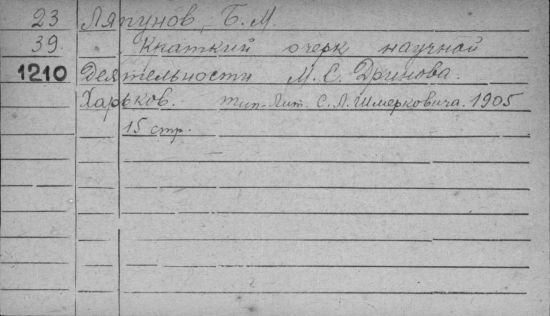 23 Ляпунов, Б. М.
39. Краткий очерк научной
1210 Деятельности М. С. Дринова.
Харьков. Тип-Лит. С. Л. Шмерковича. 1905
15 стр.